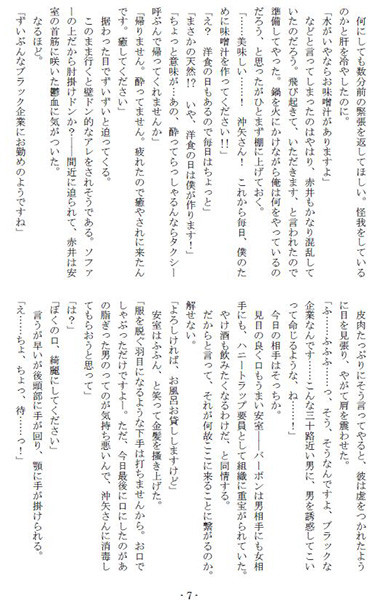 何にしても数分前の緊張を返してほしい。怪我をしている
のかと肝を冷やしたのに。
「水がいやならお味噌汁がありますよ」
などと言ってしまったのはやはり、赤井もかなり混乱して
いたのだろう。飛び起きて、いただきます、と言われたので
準備してやった。鍋を火にかけながら俺は何をやっているの
だろう、と思ったがひとまず棚に上げておく。
「……美味しい……！　沖矢さん！　これから毎日、僕のた
めに味噌汁を作ってください!!」
「え？　洋食の日もあるので毎日はちょっと」
「まさかの天然!?　いや、洋食の日は僕が作ります！」
「ちょっと意味が…あの、酔ってらっしゃるんならタクシー
呼ぶんで帰ってくれませんか」
「帰りません。酔ってません。疲れたので癒やされに来たん
です。癒してください」
据わった目でずいずいと迫ってくる。
このまま行くと壁ドン的なアレをされそうである。ソファ
の上だから肘掛けドンか？――間近に迫られて、赤井は安
室の首筋に咲いた鬱血に気がついた。
なるほど。
「ずいぶんなブラック企業にお勤めのようですね」
皮肉たっぷりにそう言ってやると、彼は虚をつかれたよう
に目を見張り、やがて肩を震わせた。
「ふ……ふふふ……っ、そう、そうなんですよ、ブラックな
企業なんです……こんな三十路近い男に、男を誘惑してこい
って命じるような、ね……！」
今日の相手はそっちか。
見目の良く口もうまい安室――バーボンは男相手にも女相
手にも、ハニートラップ要員として組織に重宝がられていた。
やけ酒も飲みたくなるわけだ、と同情する。
だからと言って、それが何故ここに来ることに繋がるのか。
解せない。
「よろしければ、お風呂お貸ししますけど」
安室はふふん、と笑って金髪を掻き上げた。
「服を脱ぐ羽目になるような下手は打ちませんから。お口で
しゃぶっただけですよー。ただ、今日最後に口にしたのがあ
の脂ぎった男のってのが気持ち悪いんで、沖矢さんに消毒し
てもらおうと思って」
「は？」
「ぼくの口、綺麗にしてください」
言うが早いが後頭部に手が回り、顎に手が掛けられる。
「え……ちょ、ちょっ、待……っ！」
- 7 -